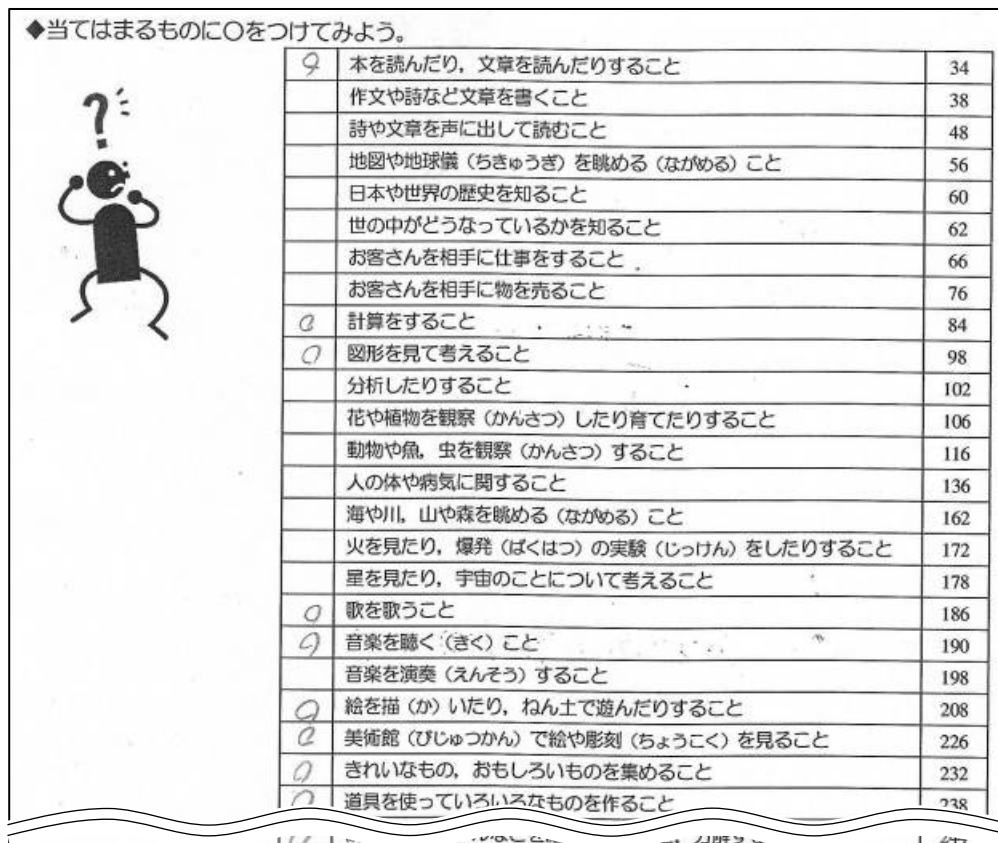 ◆当てはまるものに〇をつけてみよう。
?
〇 本を読んだり，文章を読んだりすること 34
作文や詩など文章を書くこと 38
詩や文章を声に出して読むこと 48
地図や地球儀（ちきゅうぎ）を眺める（ながめる）こと 56
日本や世界の歴史を知ること 60
世の中がどうなっているかを知ること 62
お客さんを相手に仕事をすること 66
お客さんを相手に物を売ること 76
〇 計算をすること 84
〇 図形を見て考えること 98
分析したりすること 102
花や植物を観察（かんさつ）したり育てたりすること 106
動物や魚，虫を観察（かんさつ）すること 116
人の体や病気に関すること 136
海や川，山や森を眺める（ながめる）こと 162
火を見たり，爆発（ばくはつ）の実験（じっけん）をしたりすること 172
星を見たり，宇宙のことについて考えること 178
〇 歌を歌うこと 186
〇 音楽を聴く（きく）こと 190
音楽を演奏（えんそう）すること 198
〇 絵を描（か）いたり，ねん土で遊んだりすること 208
〇 美術館（びじゅつかん）で絵や彫刻（ちょうこく）を見ること 226
〇 きれいなもの，おもしろいものを集めること 232
〇 道具を使っていろいろなものを作ること 238